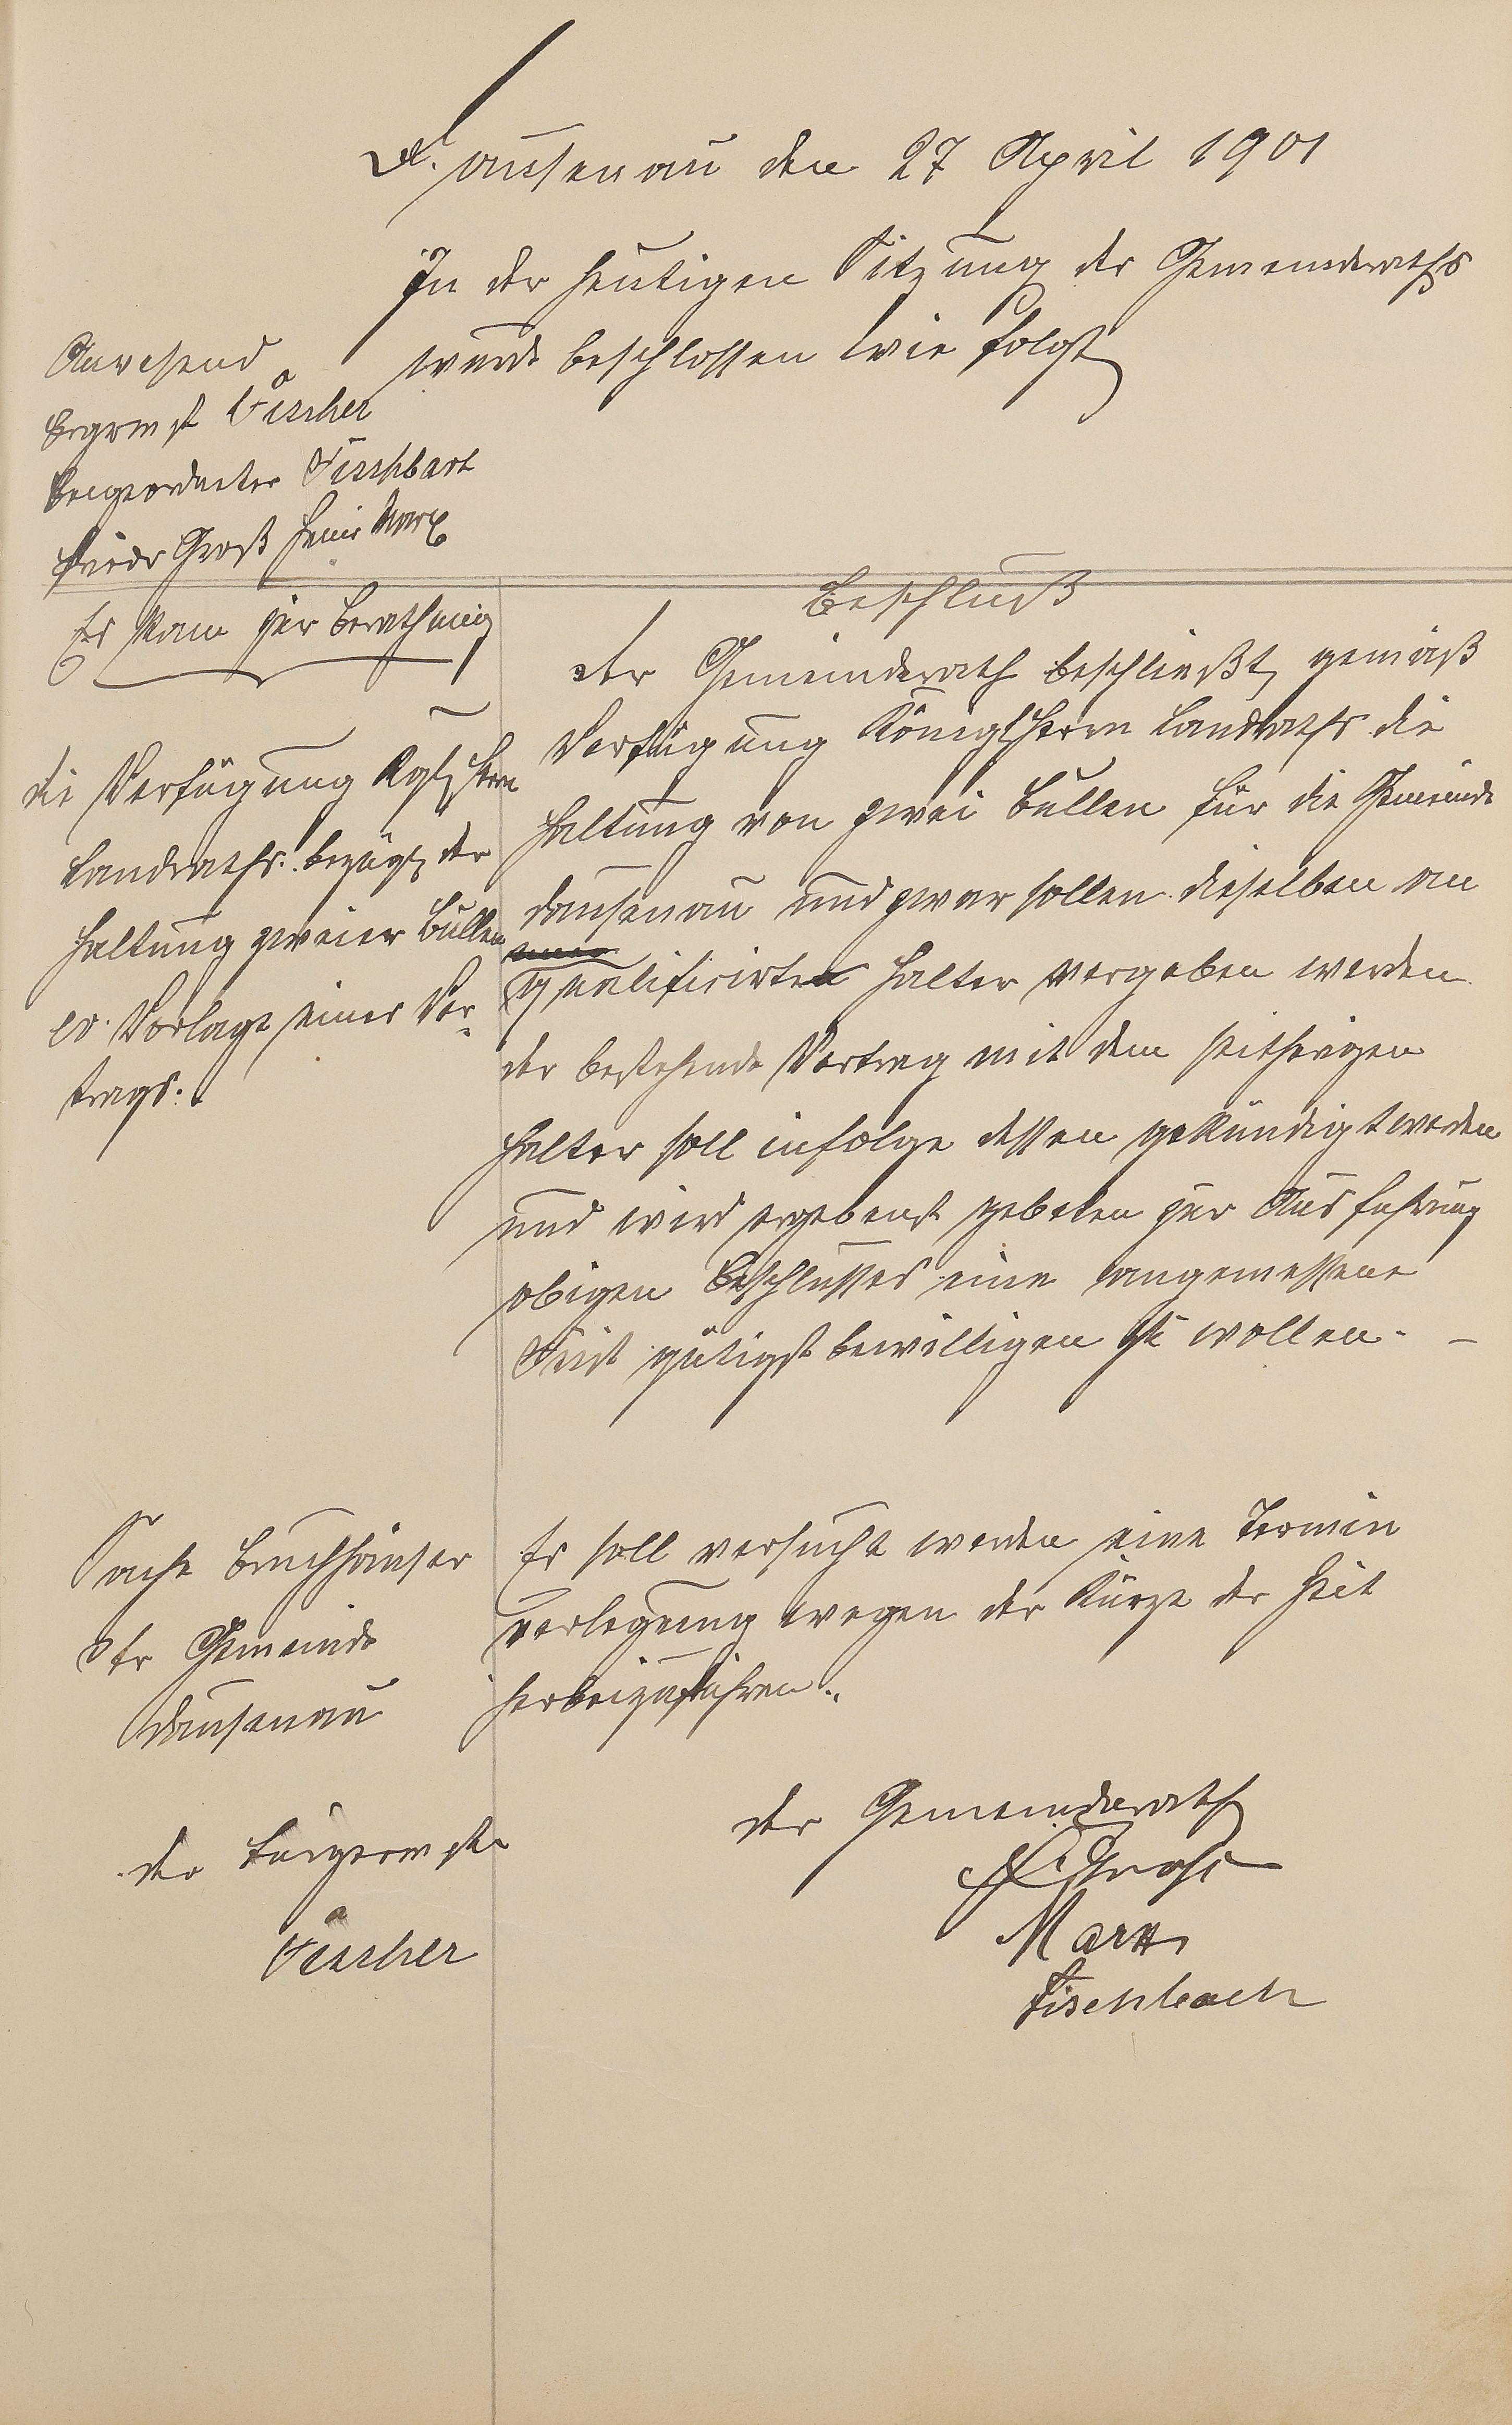 Dausenau den 27 April 1901
In der heutigen Sitzung des Gemeinderaths
wurde beschlossen wie folgt
Anwesend
Bgrmst Fischer
Beigeordneter Fischbach
Friedr Groß Heinr Marx
Es kam zur Berathung
die Verfügung Kgl Herrn
Landraths. bezügl der
Haltung zweier Bullen
ev. Vorlage eines Ver-
trags.
Beschluß
Der Gemeinderath beschließt, gemäß
Verfügung Königl Herrn Landraths die
Haltung von zwei Bullen für die Gemeinde
Dausenau und zwar sollen dieselben an
qualificirten Halter vergeben werden
der bestehende Vertrag mit dem seitherigen
Halter soll infolge dessen gekündigt werden
und wird ergebenst gebeten zur Ausfuhrung
obigen Beschlusses eine angemessene
Frist gütigst bewilligen zu wollen. -
Sache Bruchhäuser
Gemeinde
Dausenau
Es soll versucht werden eine Termin
verlegung wegen der Kürze der Zeit
herbeizuführen.
der Bürgermstr
Fischer
der Gemeinderath
F. Groß
Marx
Fischbach